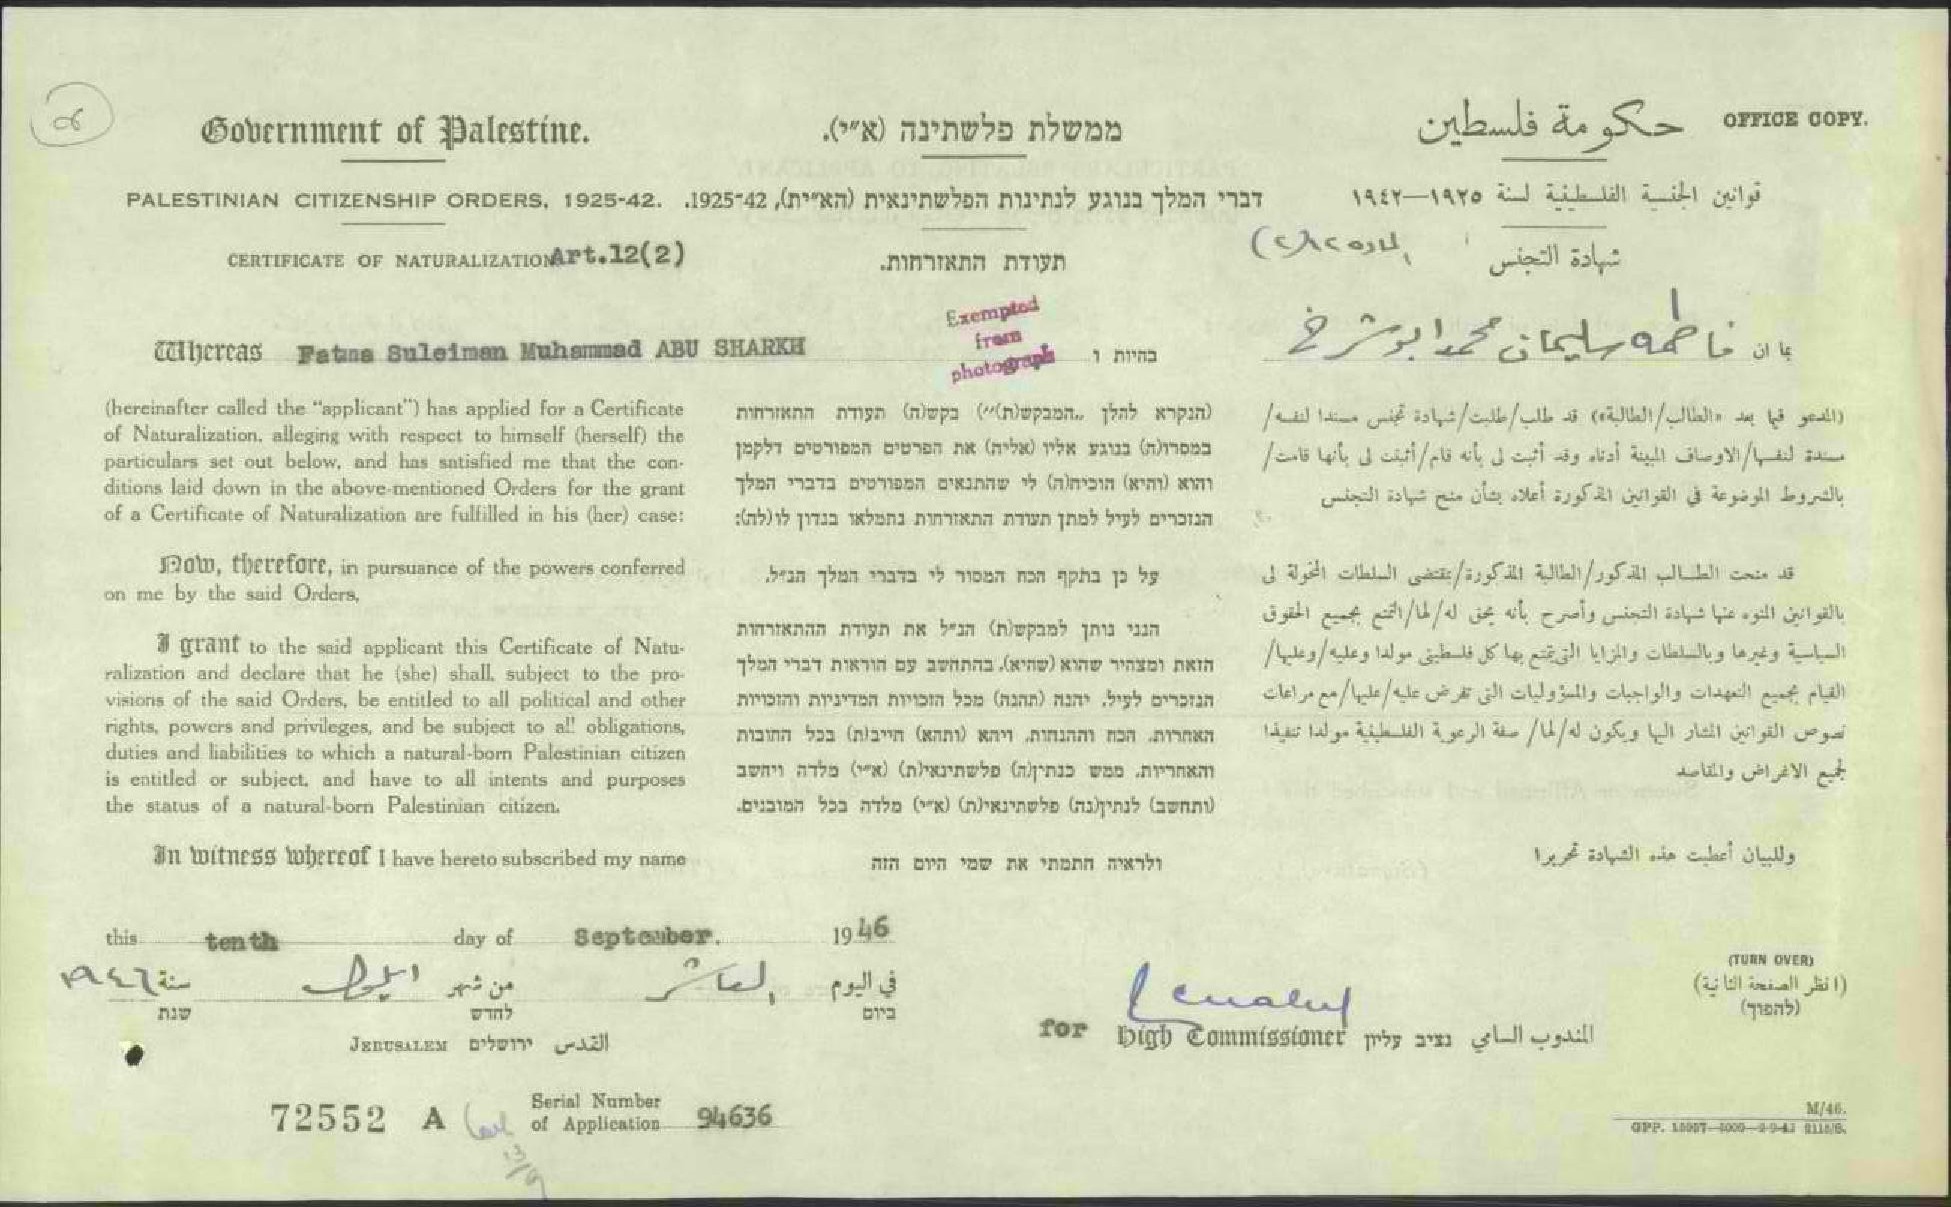 Government of Palestine.
PALESTINIAN CITIZENSHIP ORDERS, 1925-42.
CERTIFICATE OF NATURALIZATION Art.12(2)
Whereas Fatma Suleiman Muhammad ABU SHARKH
(hereinafter called the “applicant”) has applied for a Certificate
of Naturalization, alleging with respect to himself (herself) the
particulars set out below, and has satisfied me that the con-
ditions laid down in the above-mentioned Orders for the grant
of a Certificate of Naturalization are fulfilled in his (her) case:
Now, therefore, in pursuance of the powers conferred
on me by the said Orders,
I grant to the said applicant this Certificate of Natu-
ralization and declare that he (she) shall, subject to the pro-
visions of the said Orders, be entitled to all political and other
rights, powers and privileges, and be subject to all obligations,
duties and liabilities to which a natural-born Palestinian citizen
is entitled or subject, and have to all intents and purposes
the status of a natural-born Palestinian citizen.
In witness whereof I have hereto subscribed my name
ממשלת פלשתינה (א״י).
דברי המלך בנוגע לנתינות הפלשתינאית (הא״ית), 1925-42.
תעודת התאזרחות.
Exempted
from
photograph
בהיות ו
(הנקרא להלן „המבקש(ת)״) בקש(ה) תעודת התאזרחות
במסרו(ה) בנוגע אליו (אליה) את הפרטים המפורטים דלקמן
והוא (והיא) הוכיח(ה) לי שהתנאים המפורטים בדברי המלך
הנזכרים לעיל למתן תעודת התאזרחות נתמלאו בנדון לו(לה):
על כן בתקף הכח המסור לי בדברי המלך הנ״ל.
הנני נותן למבקש(ת) הנ״ל את תעודת ההתאזרחות
הזאת ומצהיר שהוא (שהיא), בהתחשב עם הוראות דברי המלך
הנזכרים לעיל, יהנה (תהנה) מכל הזכויות המדיניות והזכויות
האחרות, הכח וההנחות, ויהא (ותהא) חייב(ת) בכל החובות
והאחריות, ממש כנתין(ה) פלשתינאי(ת) (א״י) מלדה ויחשב
(ותחשב) לנתין(נה) פלשתינאי(ת) (א״י) מלדה בכל המובנים.
ולראיה חתמתי את שמי היום הזה
OFFICE COPY.
حكومة فلسطين
قوانين الجنسية الفلسطينية لسنة ١٩٢٥—١٩٤٢
شهادة التجنس المادة ١٢(٢)
بما ان فاطمه سليمان محمد ابو شرخ
(المدعو فيما بعد «الطالب/الطالبة») قد طلب/طلبت/شهادة تجنس مسندا لنفسه/
مسندة لنفسها/الاوصاف المبينة أدناه وقد أثبت لى بأنه قام/أثبتت لى بأنها قامت/
بالشروط الموضوعة في القوانين المذكورة أعلاه بشأن منح شهادة التجنس
قد منحت الطالب المذكور/الطالبة المذكورة/بمقتضى السلطات المخولة لى
بالقوانين المنوه عنها شهادة التجنس وأصرح بأنه يحق له/لها/التمتع بجميع الحقوق
السياسية وغيرها وبالسلطات والمزايا التى يتمتع بها كل فلسطينى مولدا وعليه/وعليها/
القيام بجميع التعهدات والواجبات والمسؤوليات التى تفرض عليه/عليها/مع مراعات
نصوص القوانين المشار اليها ويكون له/لها/ صفة الرعوية الفلسطينية مولدا تنفيذا
لجميع الاغراض والمقاصد
وللبيان أعطيت هذه الشهادة تحريرا
this tenth day of September. 1946
في اليوم العاشر من شهر ايلول سنة ١٩٤٦
ביום לחדש שנת
JERUSALEM ירושלים القدس
for High Commissioner נציב עליון المندوب السامي
(TURN OVER)
(انظر الصفحة الثانية)
(להפוך)
72552 A Serial Number
of Application 94636
M/46.